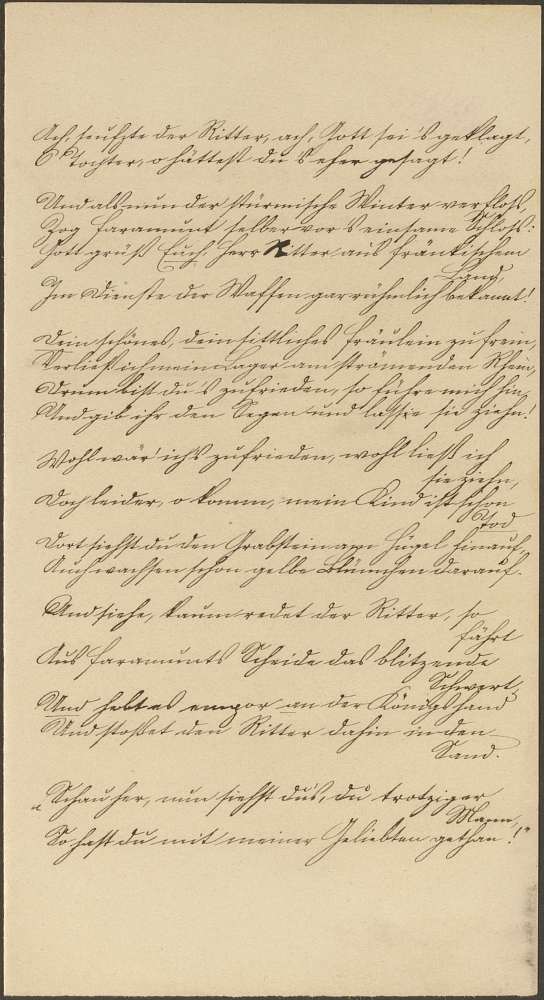 Ach, seufzte der Ritter, ach, Gott sei's geklagt,
O Tochter, o hättest du's eher gesagt!
Und als nun der stürmische Winter verfloß,
Zog Faramunt selber vor's einsame Schloß:
Gott grüß Euch, Herr Ritter aus fränkischem
Land,
Im Dienste der Waffen gar rühmlich bekannt!
Dein schönes, dein sittliches Fräulein zu frein,
Verließ ich mein Lager am strömenden Rhein,
Drum bist du's zufrieden, so führe mich hin,
Und gib ihr den Segen und lasse sie ziehn!
Wohl wär' ich's zufrieden, wohl ließ ich
sie ziehn,
Doch leider, o komm, mein Kind ist schon
Tod
Dort siehst du den Grabstein am Hügel hinauf,
Auch wachsen schon gelbe Blümchen darauf.
Und siehe, kaum redet der Ritter, so
fährt
Aus Faramunts Scheide das blitzende
Schwert,
Und hebt es empor an der Königshand
Und stoßet den Ritter dahin in den
Sand.
„Schau her, nun siehst du's, du trotziger
Mann,
So hast du mit meiner Geliebten gethan!"